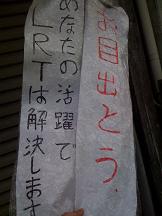 お目出とう.
あなたの活躍で
LRTは解決します